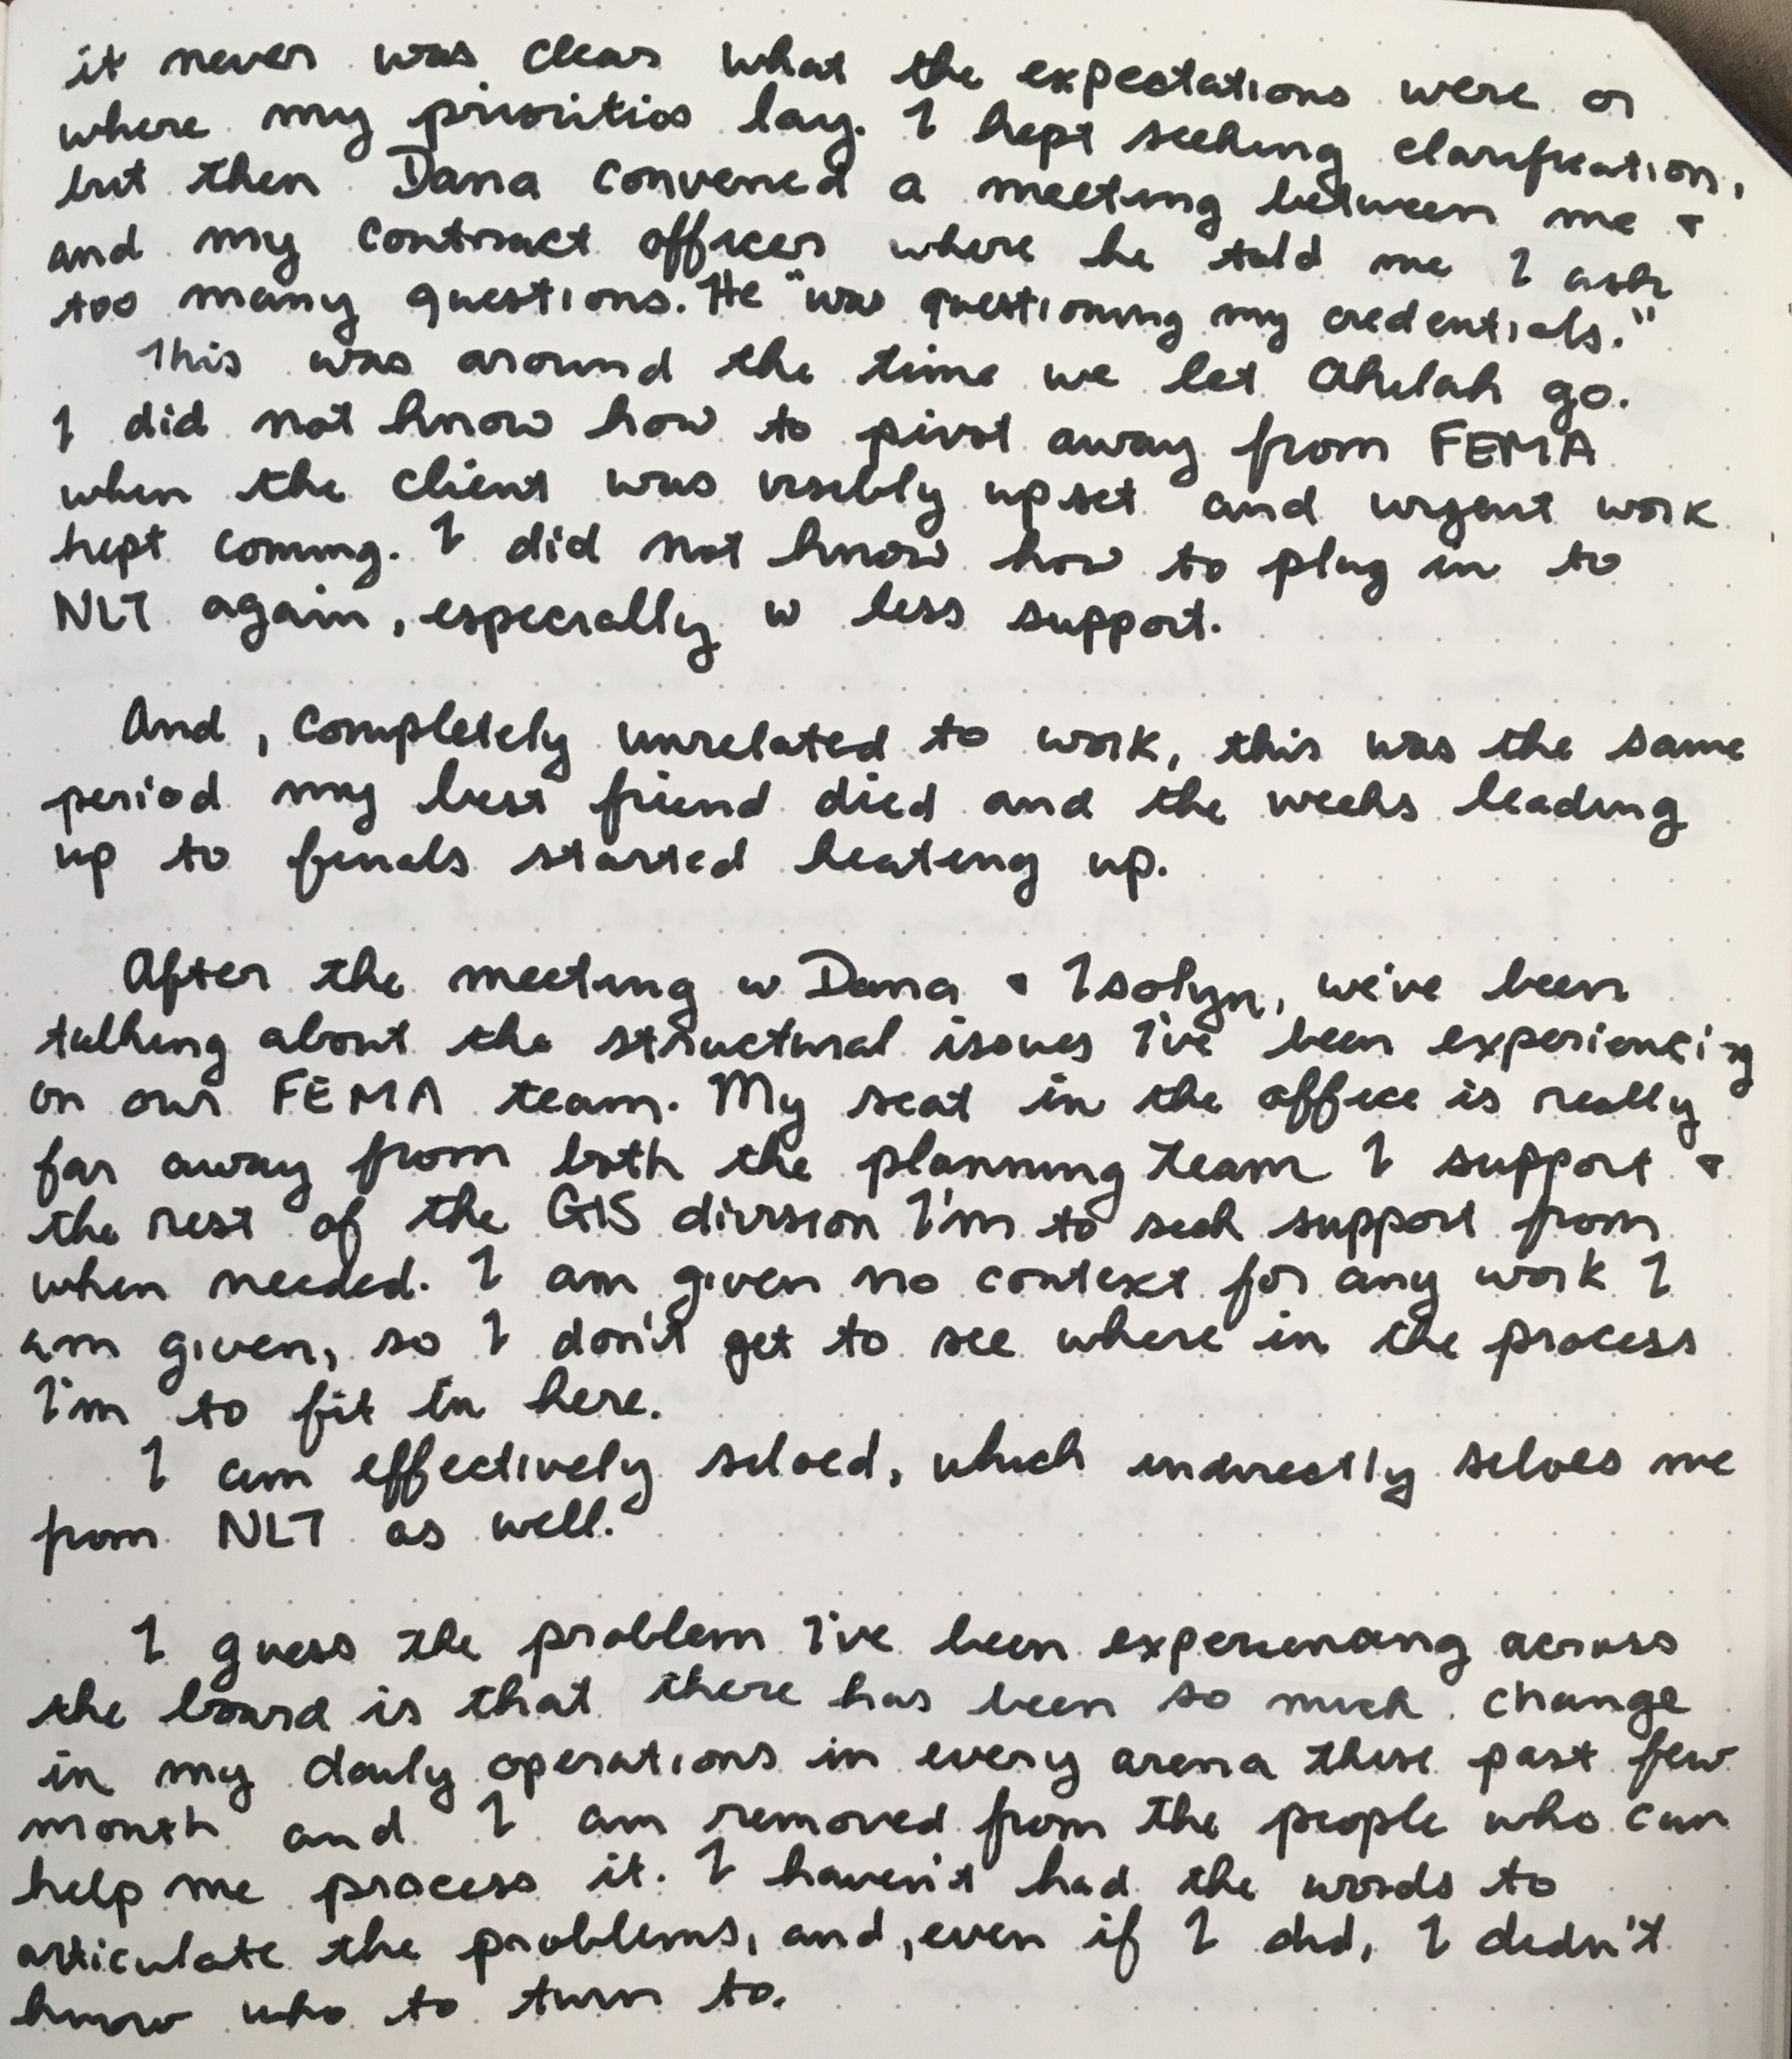 it never was clear what the expectations were or
where my priorities lay. I kept seeking clarification,
but then Dana convened a meeting between me &
and my contract officer where he told me I ask
too many questions. He "was questioning my credentials."
This was around the time we let Ahelah go.
I did not know how to pivot away from FEMA
when the client was visibly upset and urgent work
kept coming. I did not know how to plug in to
NLT again, especially w less support.
And, completely unrelated to work, this was the same
period my best friend died and the weeks leading
up to finals started heating up.
After the meeting w Dana & Isolyn, we've been
talking about the structural issues I've been experiencing
on our FEMA team. My seat in the office is really
far away from both the planning team I support &
the rest of the GIS division I'm to seek support from
when needed. I am given no context for any work I
am given, so I don't get to see where in the process
I'm to fit in here.
I am effectively siloed, which indirectly siloes me
from NLT as well.
I guess the problem I've been experiencing across
the board is that there has been so much change
in my daily operations in every arena these past few
month and I am removed from the people who can
help me process it. I haven't had the words to
articulate the problems, and, even if I did, I didn't
know who to turn to.